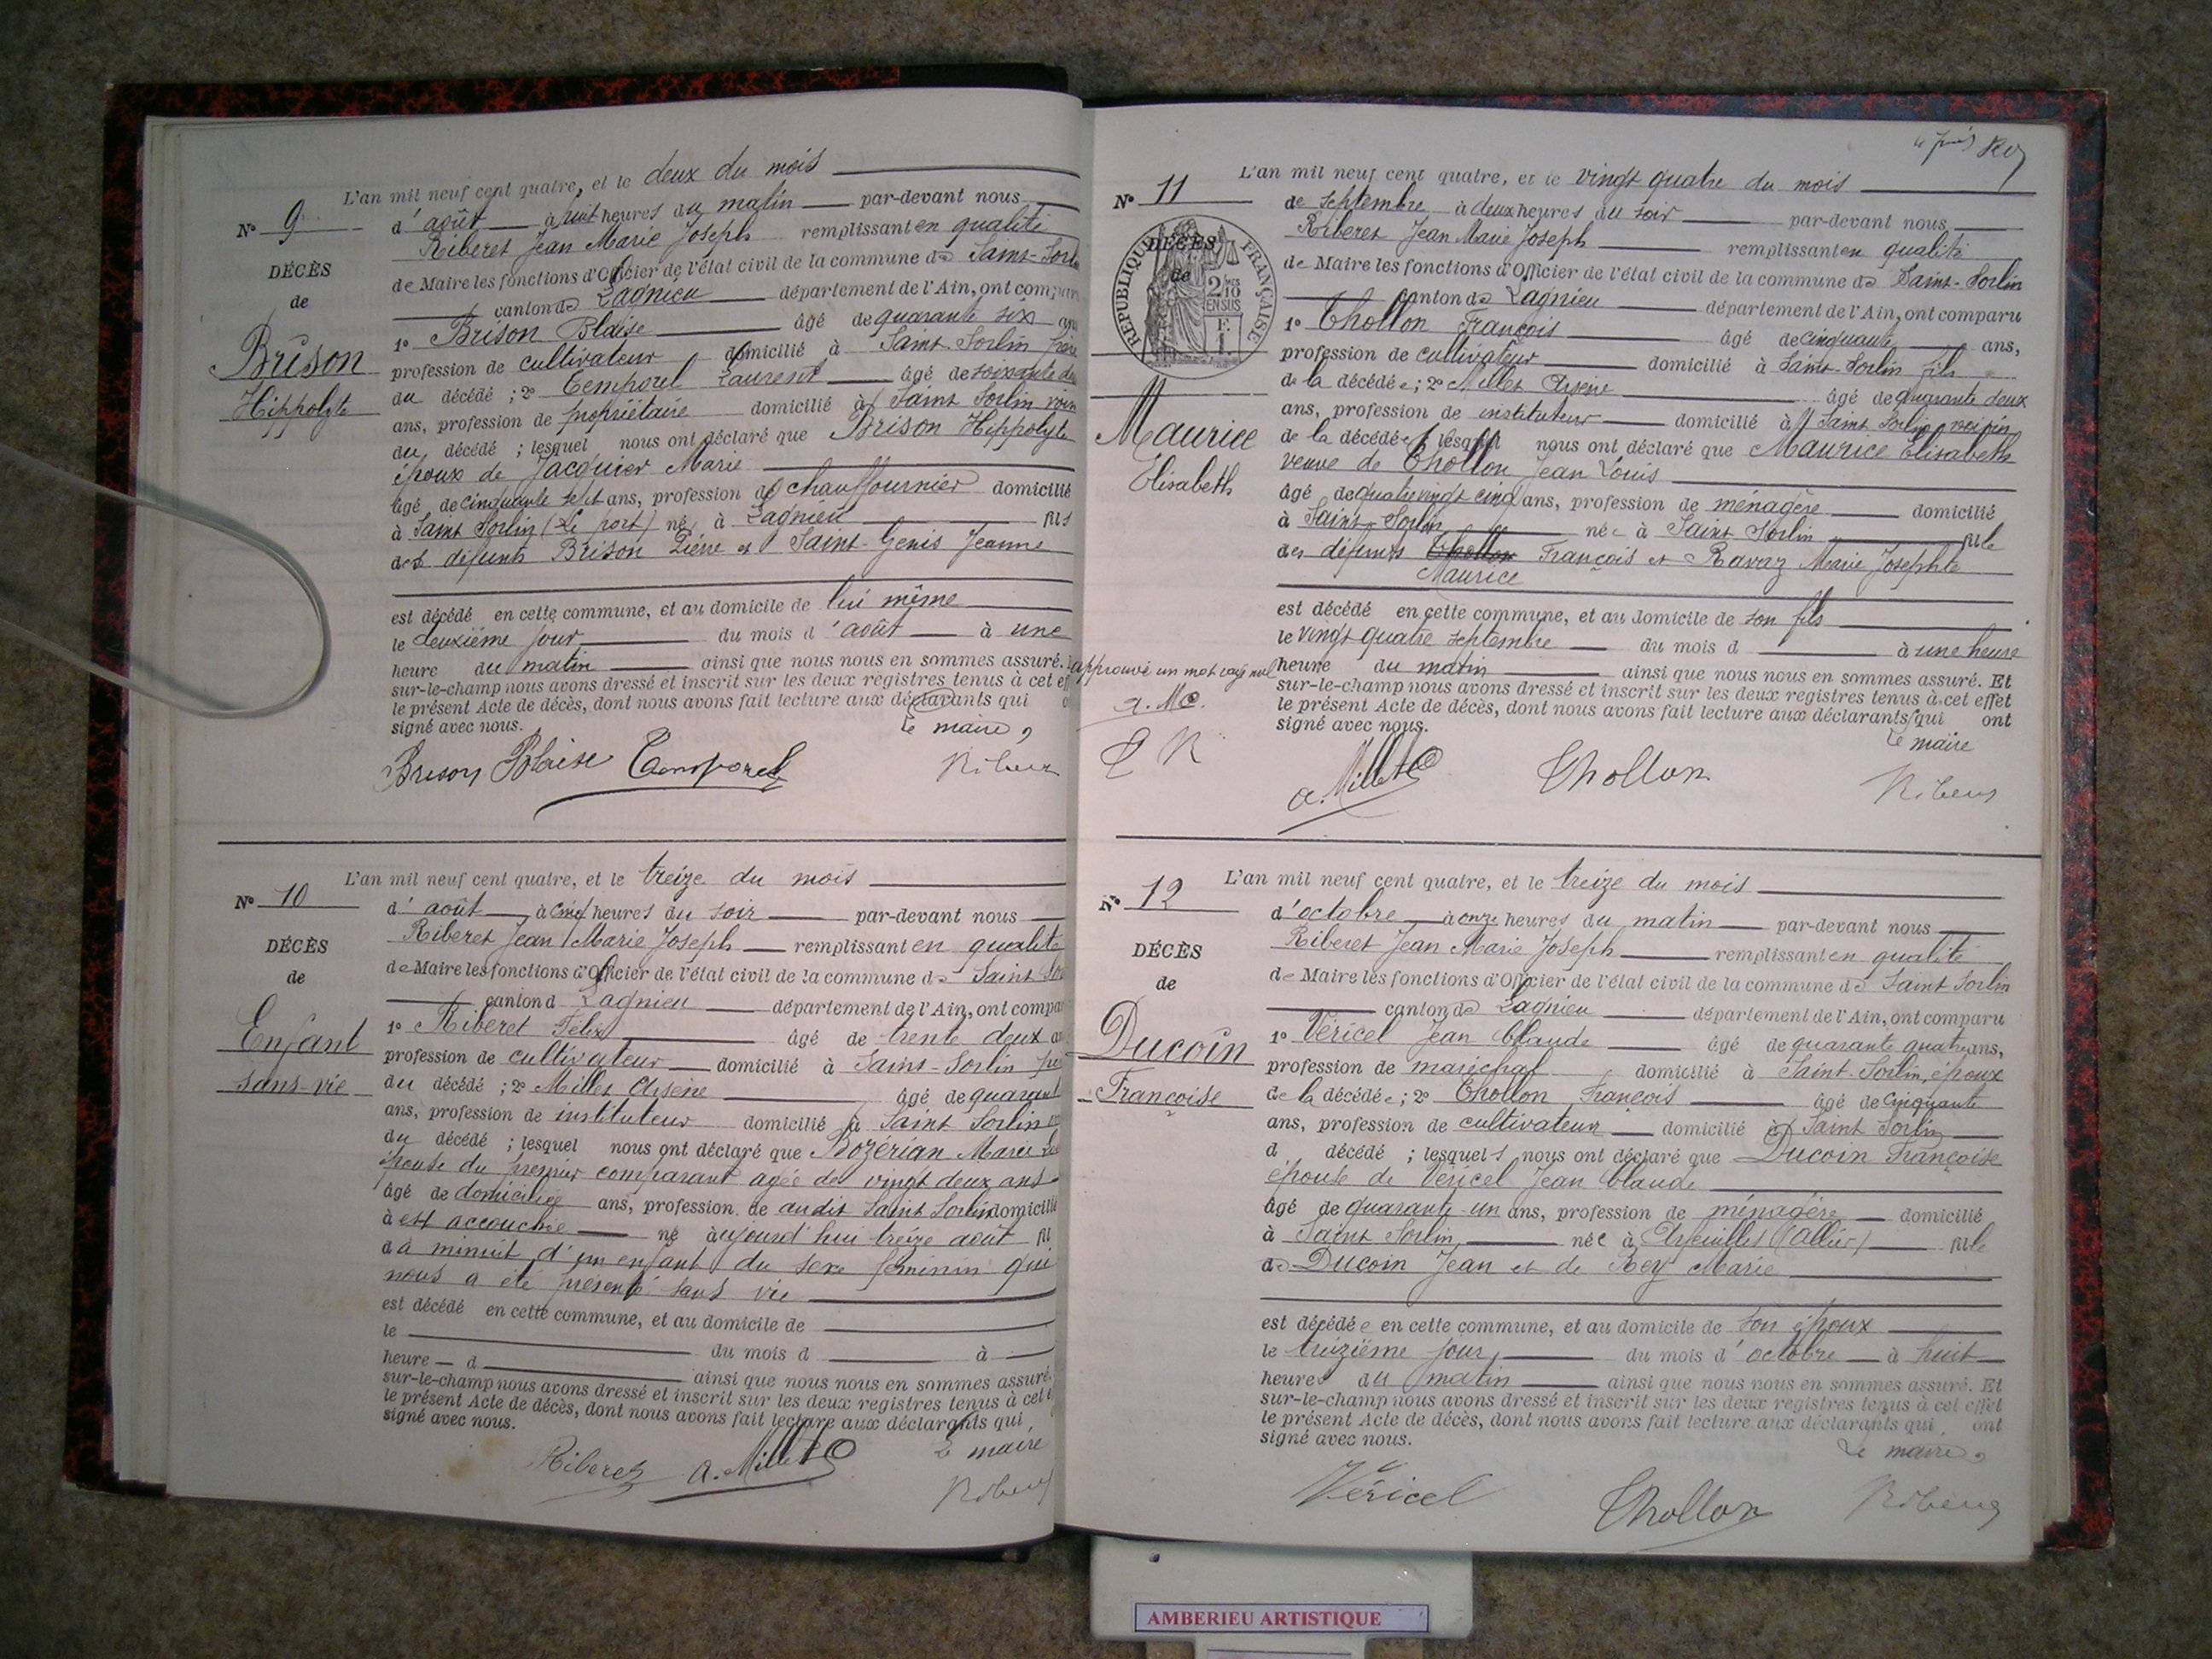 L'an mil neuf cent quatre, et le deux du mois
N° 9
d'août à huit heures du matin par-devant nous
Riberet Jean Marie Joseph remplissant en qualité
DÉCÈS
de Maire les fonctions d'Officier de l'état civil de la commune de Saint-Sorl
de
canton de Lagnieu département de l'Ain, ont compar
1° Brison Blaise âgé de quarante six an
Brison
profession de cultivateur domicilié à Saint-Sorlin frère
Hippolyte
du décédé ; 2° Temporel Laurent âgé de soixante de
ans, profession de propriétaire domicilié à Saint Sorlin voisin
du décédé ; lesquel nous ont déclaré que Brison Hippolyte
époux de Jacquier Marie
âgé de cinquante sept ans, profession de chauffournier domicilié
à Saint Sorlin (Le port) né à Lagnieu fils
des défunts Brison Pierre et Saint-Genis Jeanne
est décédé en cette commune, et au domicile de lui même
le deuxième jour du mois d'août à une
heure du matin ainsi que nous nous en sommes assuré.
sur-le-champ nous avons dressé et inscrit sur les deux registres tenus à cet ef
le présent Acte de décès, dont nous avons fait lecture aux déclarants qui
signé avec nous. Le maire,
Brison Blaise Temporel Riberet
L'an mil neuf cent quatre, et le treize du mois
N° 10
d'août à cinq heures du soir par-devant nous
Riberet Jean Marie Joseph remplissant en qualité
DÉCÈS
de Maire les fonctions d'Officier de l'état civil de la commune de Saint So
de
canton d Lagnieu département de l'Ain, ont compa
Enfant
1° Riberet Félix âgé de trente deux a
profession de cultivateur domicilié à Saint-Sorlin
sans-vie
du décédé ; 2° Millet Arsène âgé de quarant
ans, profession de instituteur domicilié à Saint Sorlin
du décédé ; lesquel nous ont déclaré que Bozérian Marie
épouse du premier comparant agée de vingt deux ans
âgé de domiciliée ans, profession de audit Saint Sorlin domicilié
à est accouchée né aujourd'hui treize août fil
d à minuit d'un enfant du sexe féminin qui
nous a été présenté sans vie
est décédé en cette commune, et au domicile de
le du mois d à
heure d ainsi que nous nous en sommes assuré.
sur-le-champ nous avons dressé et inscrit sur les deux registres tenus à cet
le présent Acte de décès, dont nous avons fait lecture aux déclarants qui
signé avec nous. Le maire
Riberet a. Millet Riberet
L'an mil neuf cent quatre, et le vingt quatre du mois
N° 11
de septembre à deux heures du soir par-devant nous
Riberet Jean Marie Joseph remplissant en qualité
DÉCÈS
de
RÉPUBLIQUE FRANÇAISE
2 10
EN SUS
de Maire les fonctions d'Officier de l'état civil de la commune de Saint-Sorlin
canton de Lagnieu département de l'Ain, ont comparu
1° Thollon François âgé de cinquante ans,
profession de cultivateur domicilié à Saint-Sorlin fils
de la décédée ; 2° Millet Arsène âgé de quarante deux
ans, profession de instituteur domicilié à Saint Sorlin voisin
Maurice
Elisabeth
de la décédée ; lesquel nous ont déclaré que Maurice Elisabeth
veuve de Thollon Jean Louis
âgé de quatre vingt cinq ans, profession de ménagère domicilié
à Saint-Sorlin née à Saint Sorlin fille
des défunts Thollon François et Ravaz Marie Josephte
Maurice
est décédé en cette commune, et au domicile de son fils
le vingt quatre septembre du mois d à une heure
heure du matin ainsi que nous nous en sommes assuré. Et
approuvé un mot rayé nul
a. M.
R
sur-le-champ nous avons dressé et inscrit sur les deux registres tenus à cet effet
le présent Acte de décès, dont nous avons fait lecture aux déclarants qui ont
signé avec nous. Le maire
a. Millet Thollon Riberet
L'an mil neuf cent quatre, et le treize du mois
N° 12
d'octobre à onze heures du matin par-devant nous
Riberet Jean Marie Joseph remplissant en qualité
DÉCÈS
de Maire les fonctions d'Officier de l'état civil de la commune de Saint Sorlin
de
canton de Lagnieu département de l'Ain, ont comparu
Ducoin
1° Véricel Jean Claude âgé de quarante quatre ans,
profession de maréchal domicilié à Saint-Sorlin, époux
Françoise
de la décédée ; 2° Thollon François âgé de cinquante
ans, profession de cultivateur domicilié à Saint Sorlin
d décédé ; lesquels nous ont déclaré que Ducoin Françoise
épouse de Véricel Jean Claude
âgé de quarante-un ans, profession de ménagère domicilié
à Saint Sorlin née à Arfeuilles (Allier) fille
de Ducoin Jean et de Rey Marie
est décédée en cette commune, et au domicile de son époux
le treizième jour du mois d'octobre à huit
heures du matin ainsi que nous nous en sommes assuré. Et
sur-le-champ nous avons dressé et inscrit sur les deux registres tenus à cet effet
le présent Acte de décès, dont nous avons fait lecture aux déclarants qui ont
signé avec nous. Le maire,
Véricel Thollon Riberet
AMBERIEU ARTISTIQUE